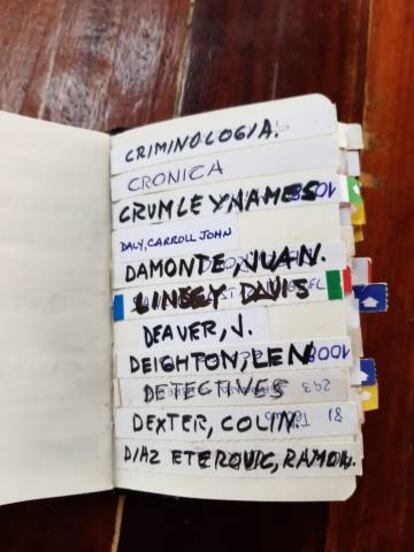 CRIMINOLOGIA.
CRONICA
CRUMLEY, JAMES
DALY, CARROLL JOHN
DAMONTE, JUAN.
LINDSEY DAVIS
DEAVER, J.
DEIGHTON, LEN
DETECTIVES
DEXTER, COLIN.
DIAZ ETEROVIC, RAMON.